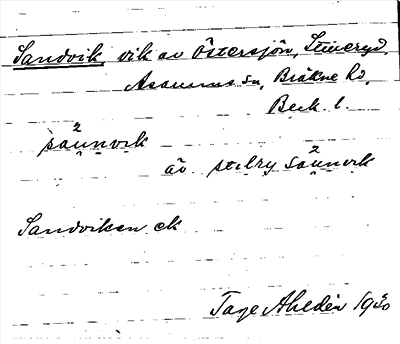 Sandvik, vik av Östersjön, Stilleryd,
Asarums sn, Bräkne hd,
Blek. l.
sau̯nvik
äv. stilry sau̯nvik
Sandviken ek
Tage Ahldén 1930